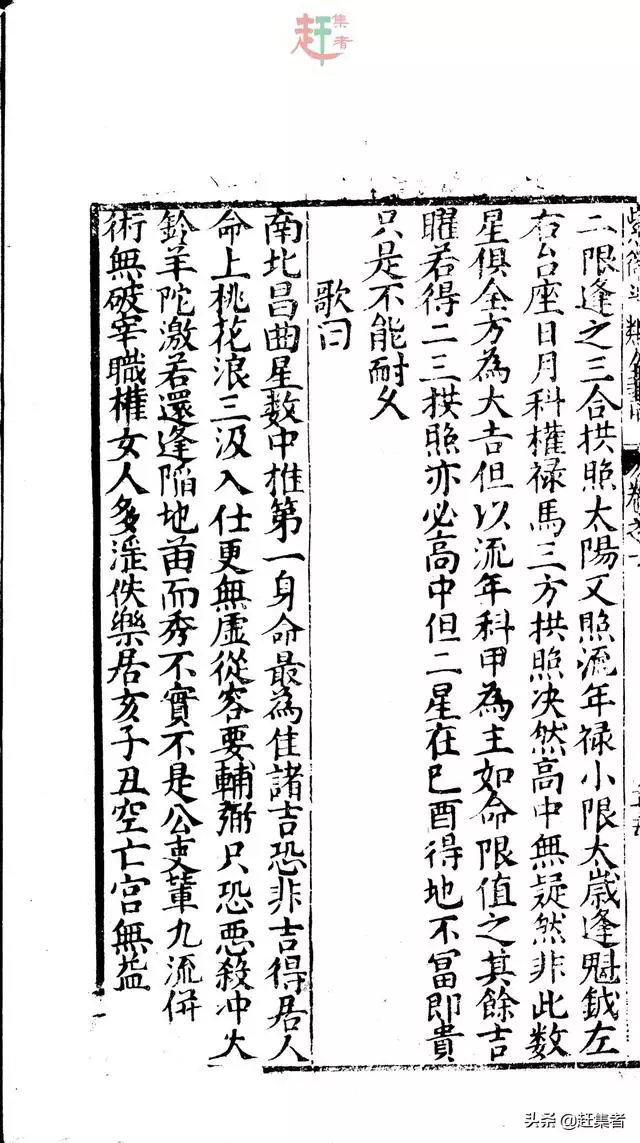 赶集者
二限逢之三合拱照太陽又照流年禄小限太歲逢魁鉞左
右台座日月科權禄馬三方拱照决然高中無疑然非此数
星俱全方為大吉但以流年科甲為主如命限值之其餘吉
曜若得二三拱照亦必高中但二星在巳酉得地不冨即貴
只是不能耐久
歌曰
南北昌曲星数中推第一身命最為佳諸吉恐非吉得居人
命上桃花浪三汲入仕更無虛從容要輔弼只恐惡殺冲火
鈴羊陀激若還逢陥地苗而秀不實不是公吏輩九流併
術無破宰職權女人多淫佚樂居亥子丑空亡宮無益
头条 @赶集者